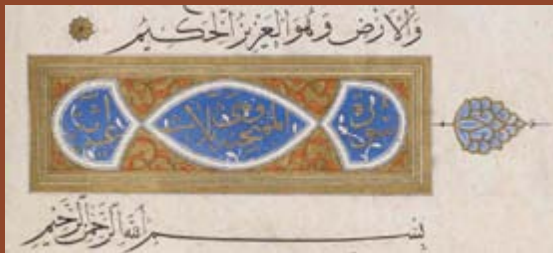 وَالْأَرْضِ وَهُوَ الْعَزِيزُ الْحَكِيمُ
سورة الممتحنة وهي ثلاث عشر
بِسْمِ اللَّهِ الرَّحْمَٰنِ الرَّحِيمِ